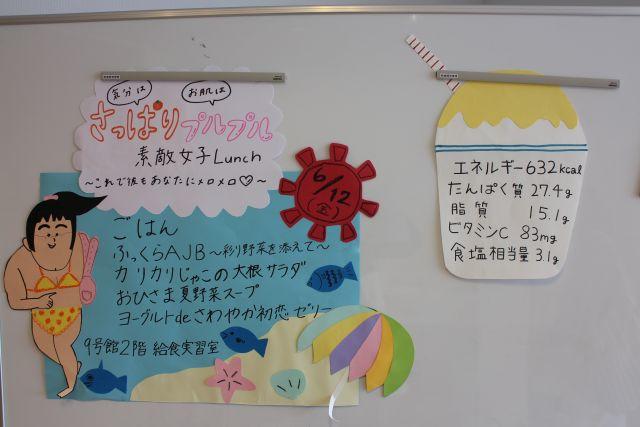 気分は お肌は
さっぱり プルプル
素敵女子Lunch
～これで彼もあなたにメロメロ♡～
6/12
金
ごはん
ふっくらAJB～彩り野菜を添えて～
カリカリじゃこの大根サラダ
おひさま夏野菜スープ
ヨーグルトdeさわやか初恋ゼリー
9号館2階 給食実習室
エネルギー632kcal
たんぱく質27.4g
脂質 15.1g
ビタミンC 83mg
食塩相当量3.1g